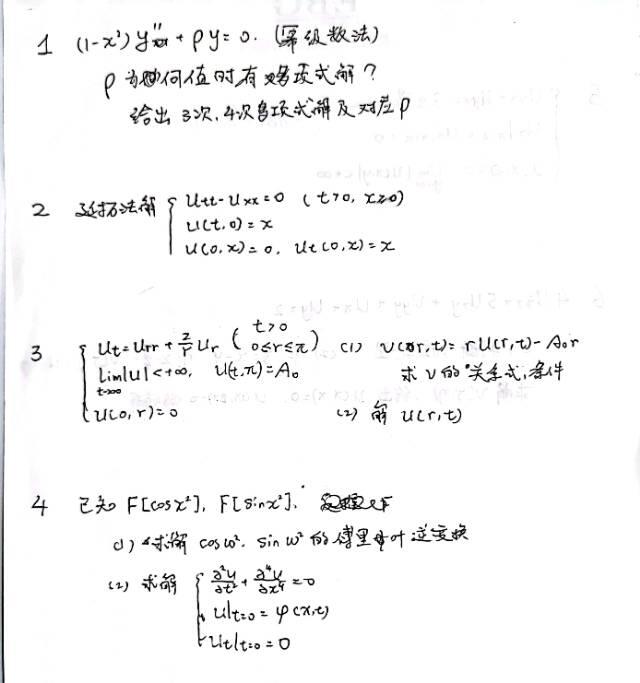 1 (1-x²)y'' + ρy = 0. (幂级数法)
ρ为何值时有多项式解?
给出3次,4次多项式解及对应ρ
2 延拓法解 { Utt - Uxx = 0 (t>0, x≥0)
U(t,0) = x
U(0,x) = 0, Ut(0,x) = x
3 { Ut = Urr + 2/r Ur (t>0 0≤r≤π) (1) v(r,t) = rU(r,t) - A₀r
lim t→∞ |U| < +∞, U(t,π) = A₀ 求v的关系式,条件
U(0,r) = 0 (2) 解 U(r,t)
4 已知 F[cosx²], F[sinx²].
(1) 求解 cosω², sinω² 的傅里叶逆变换
(2) 求解 { ∂²u/∂t² + ∂⁴u/∂x⁴ = 0
U|t=0 = φ(x,t)
Ut|t=0 = 0